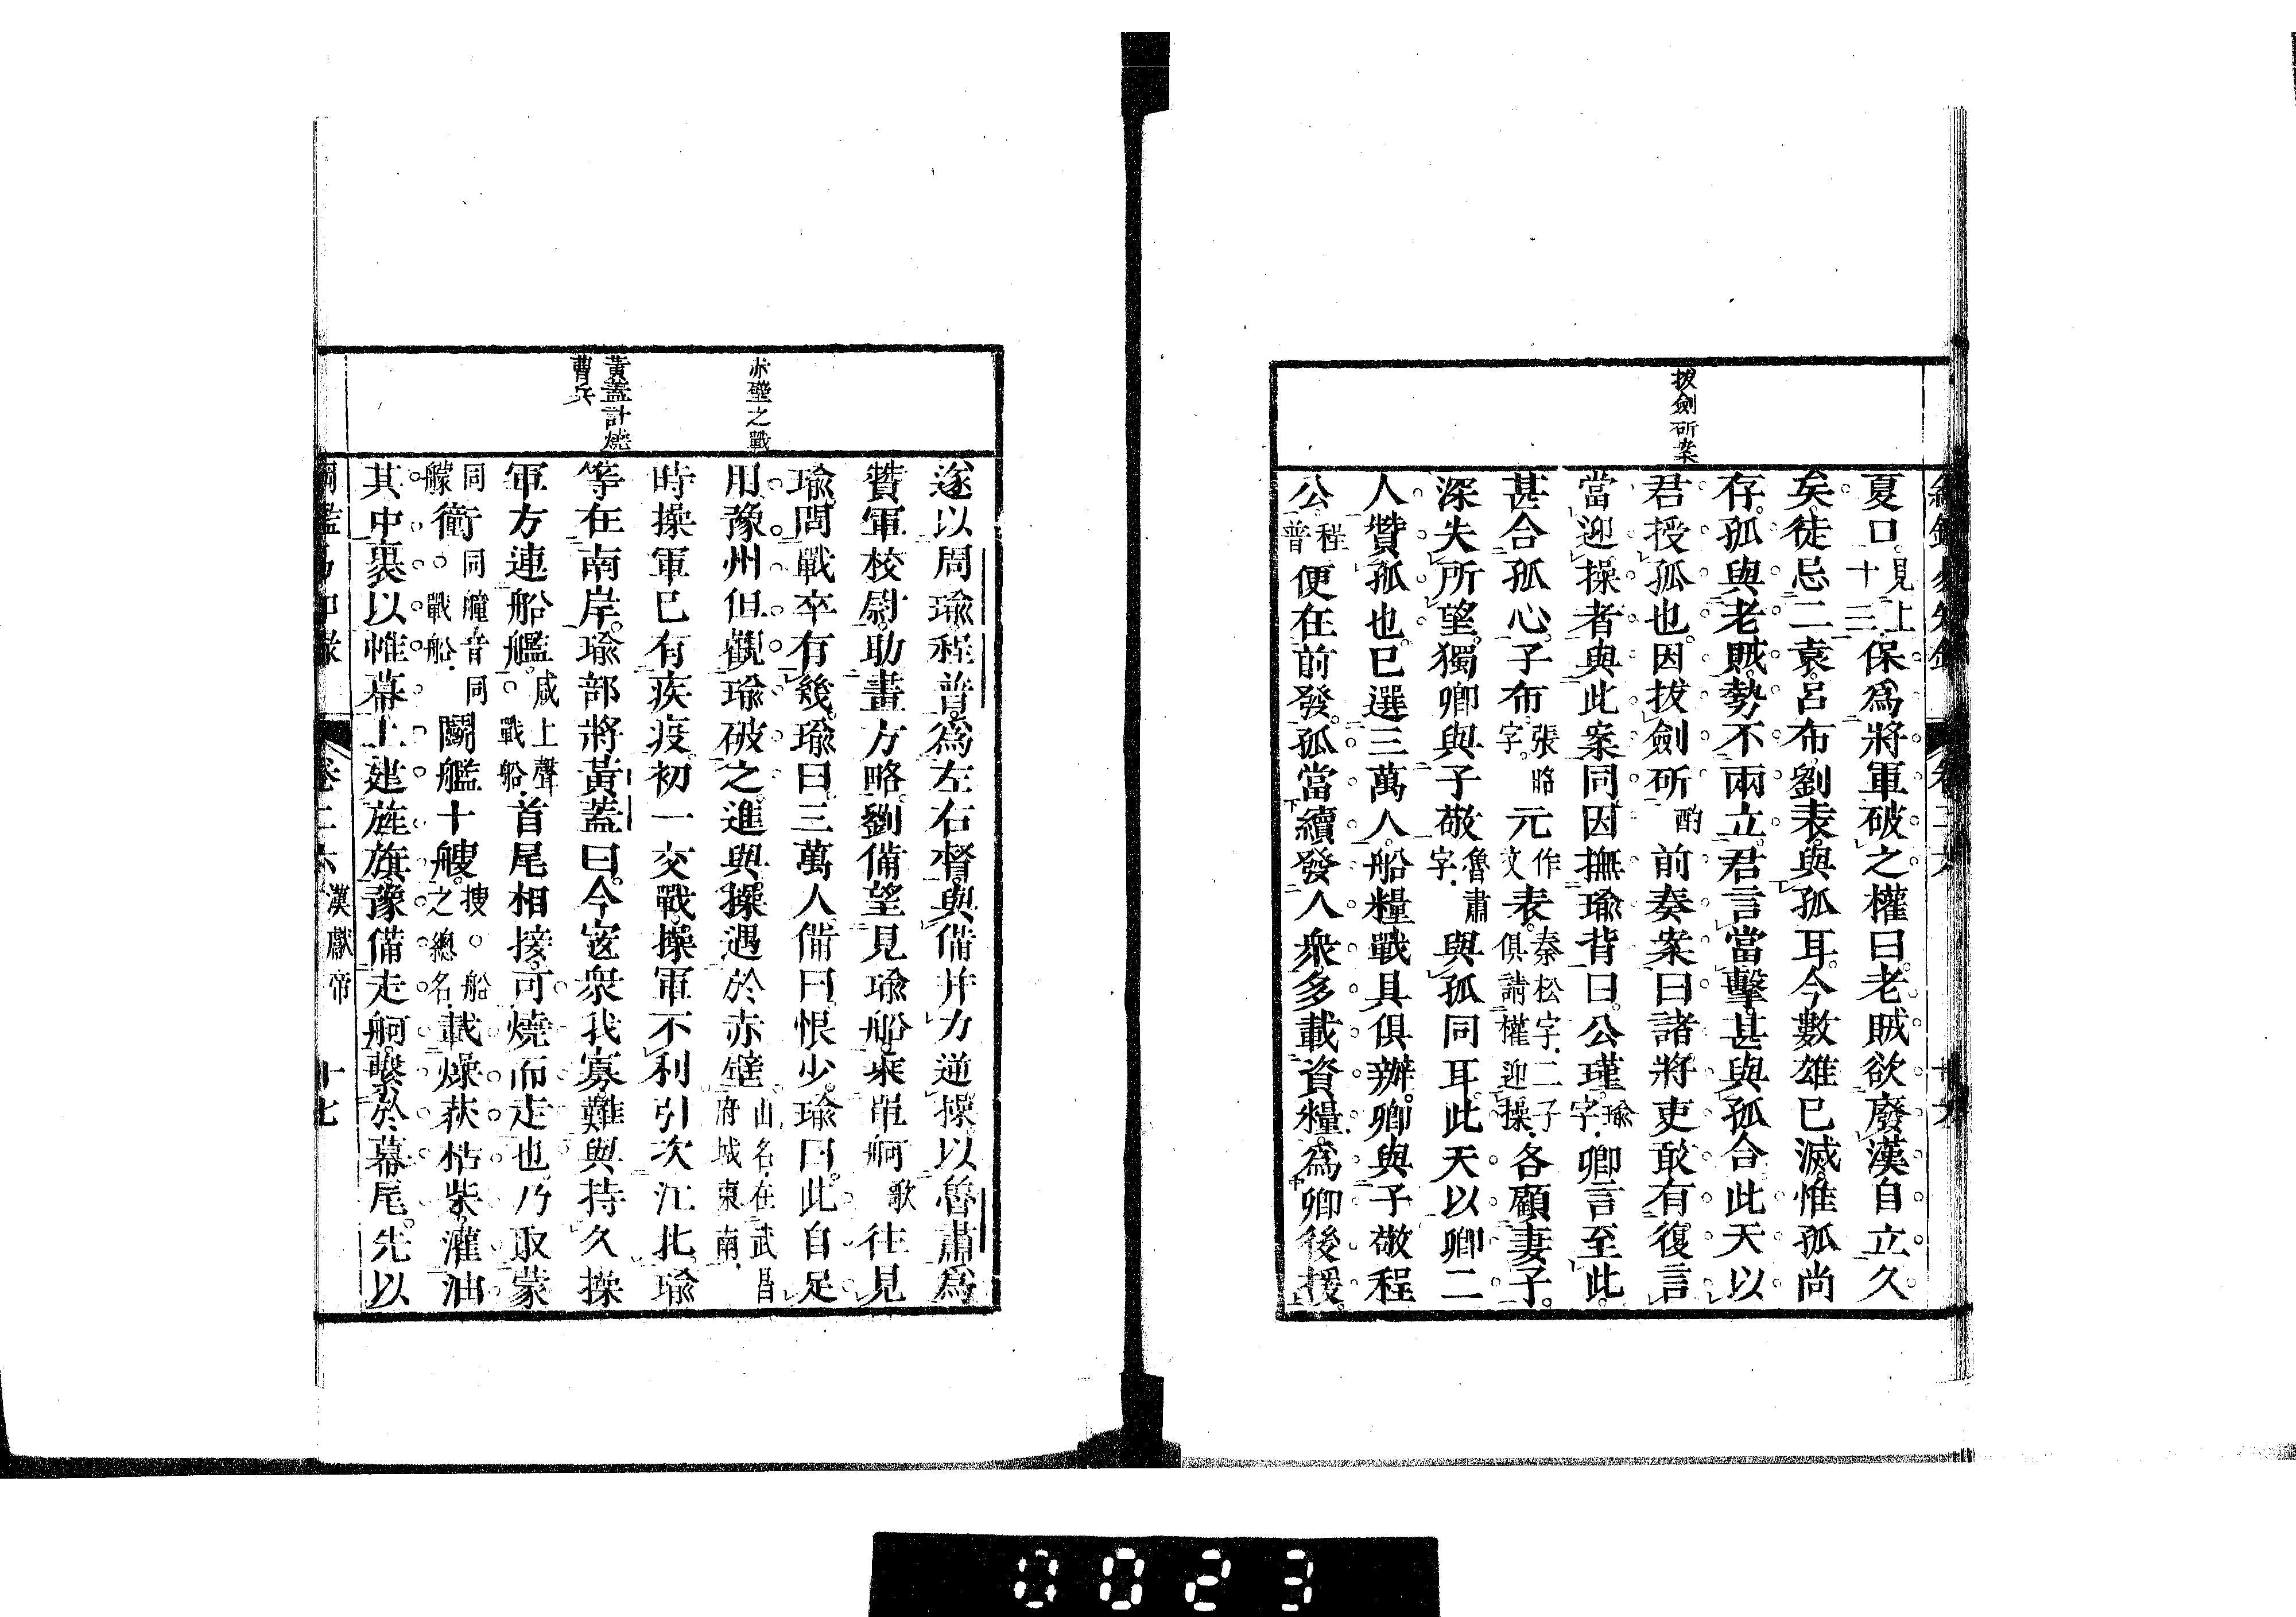 拔劍斫案
夏口見上十三保爲將軍破之權曰老賊欲廢漢自立久
矣徒忌二袁呂布劉表與孤耳今數雄已滅惟孤尚
存孤與老賊勢不兩立君言當擊甚與孤合此天以
君授孤也因拔劍斫酌前奏案曰諸將吏敢有復言
當迎操者與此案同因撫瑜背曰公瑾瑜字卿言至此
甚合孤心子布張昭字元作文表秦松字二子俱請權迎操各顧妻子
深失所望獨卿與子敬魯肅字與孤同耳此天以卿二
人贊孤也已選三萬人船糧戰具俱辦卿與子敬程
公程普便在前發孤當續發人衆多載資糧爲卿後援
赤壁之戰
黃蓋計燒
曹兵
遂以周瑜程普爲左右督與備并力逆操以魯肅爲
贊軍校尉助畫方略劉備望見瑜船乘單舸歌往見
瑜問戰卒有幾瑜曰三萬人備曰恨少瑜曰此自足
用豫州但觀瑜破之進與操遇於赤壁山名在武昌府城東南
時操軍已有疾疫初一交戰操軍不利引次江北瑜
等在南岸瑜部將黃蓋曰今寇衆我寡難與持久操
軍方連船艦咸上聲戰船首尾相接可燒而走也乃取蒙
同艨衝同艟音同戰船鬬艦十艘搜船之總名載燥荻枯柴灌油
其中裹以帷幕上建旌旗豫備走舸繫於幕尾先以
卷二六 漢獻帝 十七